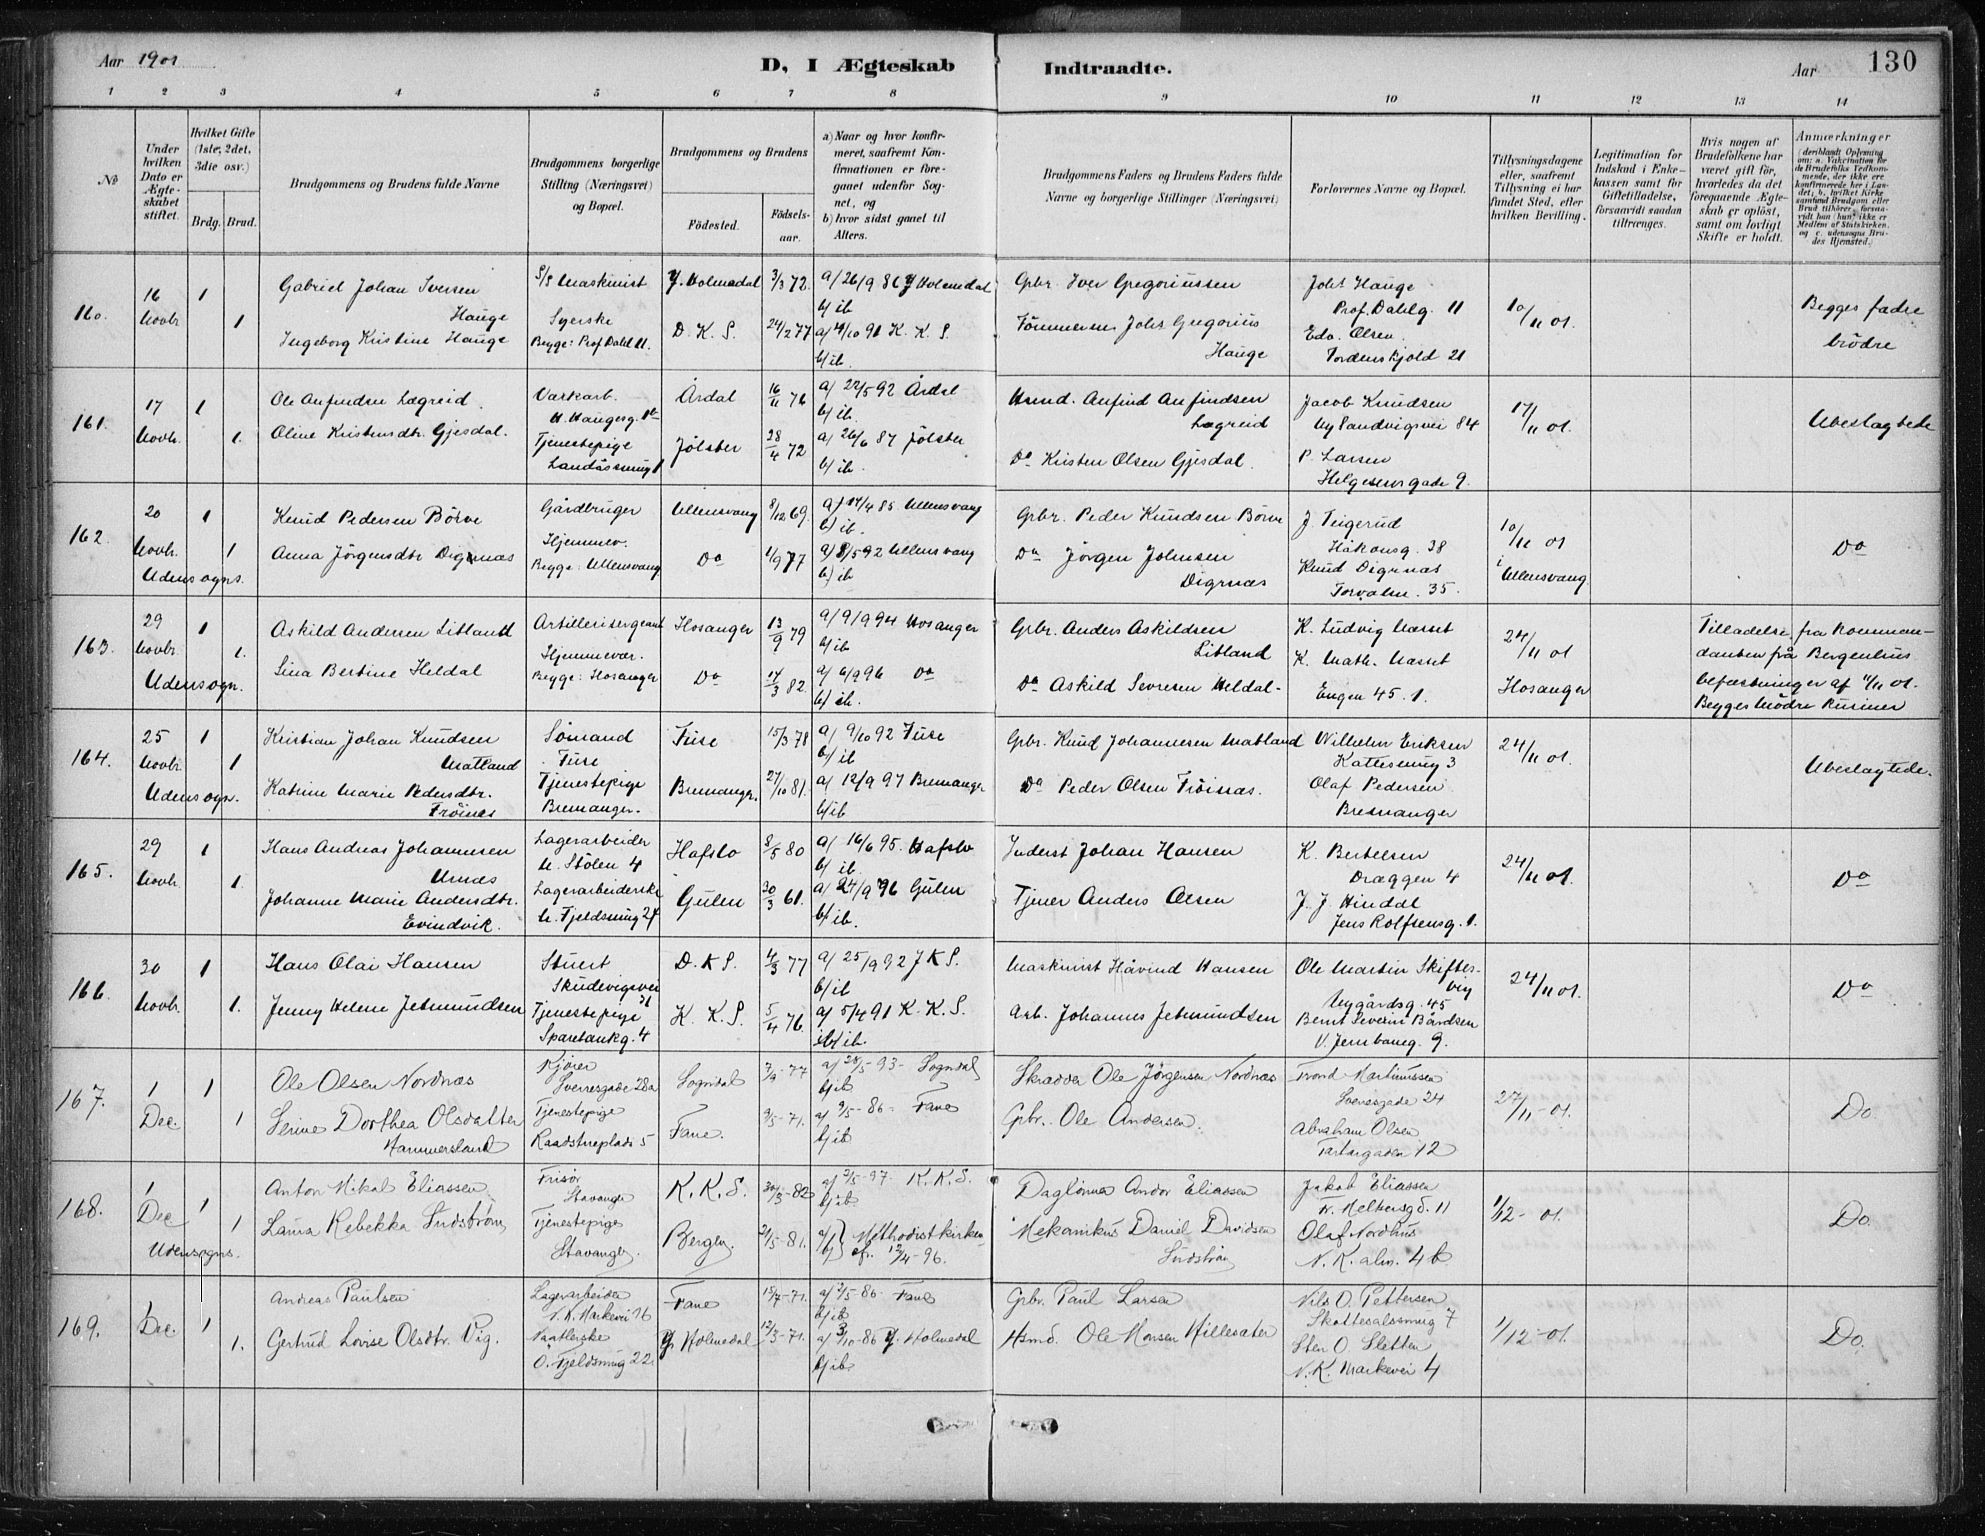 Aar 1901
D, I Ægteskab
Indtraadte.
Aar
130
1 2 3 4 5 6 7 8 9 10 11 12 13 14
No
Under hvilken Dato er Ægteskabet stiftet.
Hvilket Gifte (1ste, 2det, 3die osv.)
Brdg. Brud.
Brudgommens og Brudens fulde Navne
Brudgommens borgerlige Stilling (Næringsvei) og Bopæl.
Brudgommens og Brudens
Fødested.
Fødselsaar.
a) Naar og hvor konfirmeret, saafremt Konfirmationen er foregaaet udenfor Sognet, og
b) hvor sidst gaaet til Alters.
Brudgommens Faders og Brudens Faders fulde Navne og borgerlige Stillinger (Næringsvei)
Forlovernes Navne og Bopæl.
Tillysningsdagene eller, saafremt Tillysning ei har fundet Sted, efter hvilken Bevilling.
Legitimation for Indskud i Enkekassen samt for Giftetilladelse, forsaavidt saadan tiltrænges.
Hvis nogen af Brudefolkene har været gift før, hvorledes da det foregaaende Ægteskab er opløst, samt om lovligt Skifte er holdt.
Anmærkninger
(deriblandt Oplysning om: a. Vakcination for de Brudefolks Vedkommende, der ikke ere konfirmerede her i Landet; b. hvilket Kirkesamfund Brudgom eller Brud tilhører, forsaavidt han (hun) ikke er Medlem af Statskirken, og c. udensogns Brudes Hjemsted.)
160.
16 Novbr
1
1
Gabriel Johan Iversen
Hauge
Ingeborg Kristine Hauge
S/S Maskinist
Syerske
Begge: Prof Dahl 11.
Y. Holmedal
D. K. S.
3/3 72.
24/2 77
a/ 26/9 86 Y Holmedal
b/ ib
a/ 4/10 91 K. K. S.
b/ ib.
Gbr. Iver Gregoriussen
Tömmerm Johs Gregorius
Hauge
Johs Hauge
Prof. Dahlg. 11
Edv. Olsen
Tordenskjold 21
10/11 01.
Begges fædre
brödre
161.
17 Novbr.
1
1.
Ole Anfindsen Lægreid.
Oline Kristensdtr. Gjesdal.
Værkarb.
H. Haugesg. 1b
Tjenestepige
Landåssmug 1
Årdal
Jölster
16/11 76
28/4 72
a/ 22/5 92 Årdal
b/ ib.
a/ 26/6 87 Jölster
b/ ib.
Husmd. Anfind Anfindsen
Lægreid
Do Kristen Olsen Gjesdal.
Jacob Knudsen
Ny Sandvigsvei 84
P. Larsen
Helgesensgade 9.
17/11 01.
Ubeslægtede
162.
20 Novbr.
Udensogns.
1
1
Knud Pedersen Börve
Anna Jörgensdtr Digrnæs
Gårdbruger
Hjemmev.
Begge: Ullensvang
Ullensvang
Do
8/12 69.
1/9 77
a/ 14/4 85 Ullensvang
b/ ib.
a/ 8/5 92 Ullensvang
b/ ib
Gbr. Peder Knudsen Börve
Do Jörgen Johnsen
Digrnæs
J. Teigerud
Håkonsg. 38
Knud Digrnæs
Torvalm. 35.
10/11 01
i Ullensvang.
Do
163.
29 Novbr.
Udensogn.
1
1.
Askild Andersen Litland
Sina Bertine Heldal
Artillerisergeant
Hjemmevær.
Begge: Hosanger
Hosanger
Do
13/9 79
14/3 82.
a/ 9/9 94 Hosanger
b/ ib
a/ 6/9 96 Do
b/ ib.
Gbr. Anders Askildsen
Litland
Do Askild Sevresen Heldal.
K. Ludvig Næsset
K. Math. Næsset
Engen 45. 1.
24/11 01
Hosanger
Tilladelse fra Kommandanten på Bergenhus
befæstninger af 11/11 01.
Begges Mödre Kusiner
164.
25 Novbr.
Udensogn.
1
1
Kristian Johan Knudsen
Matland
Katrine Marie Pedersdtr.
Fröinæs
Sömand
Fuse
Tjenestepige
Bremanger.
Fuse
Bremanger.
15/3 78
27/10 81.
a/ 9/10 92 Fuse
b/ ib
a/ 12/9 97 Bremanger
b/ ib
Gbr. Knud Johannesen Matland
Do Peder Olsen Fröinæs.
Wilhelm Eriksen
Kattesmug 3
Olaf Pedersen
Bremanger
24/11 01.
Ubeslægtede.
165.
29 Novbr.
1
1.
Hans Andreas Johannesen
Urnæs
Johanne Marie Andersdtr.
Evindvik.
Lagerarbeider
N. Stölen 4
Lagerarbeiderske
N. Fjeldsmug 27
Hafslo
Gulen
8/5 80
30/3 61.
a/ 16/6 95. Hafslo
b/ ib.
a/ 24/9 76 Gulen
b/ ib.
Inderst Johan Hansen
Tjener Anders Olsen
K. Bertelsen
Dræggen 4
J. J. Hindal
Jens Rolfsensg. 1.
24/11 01.
Do
166.
30 Novbr.
1
1.
Hans Olai Hansen
Jenny Helene Jetmundsen
Stuert
Skudevigsvei 31
Tjenestepige
Sparebankg. 4
D. K S.
K. K. S.
4/3 77
5/4 76.
a/ 25/9 92 J K S.
b/ ib
a/ 5/4 91 K. K. S.
b/ ib.
Maskinist Håvind Hansen
Arb. Johannes Jetmundsen
Ole Martin Skiftesvig
Nygårdsg. 45
Bernt Severin Bårdsen
V. Jernbaneg. 9.
24/11 01.
Do
167.
1 Dec.
1
1
Ole Olsen Nordnæs
Serine Dorthea Olsdatter
Hammersland
Kjører
Sverresgade 28a
Tjenestepige
Raadstueplads 5
Sogndal
Fane.
7/9-77
9/5-71.
a/ 28/5-93- Sogndal
b/ ib
a/ 9/5-86- Fane
b/ ib
Skrædder Ole Jørgensen Nordnæs
Gbr. Ole Andersen.
Trond Martinussen
Sverresgade 24
Abraham Olsen
Tartargaden 12
27/11-01.
Do.
168.
1 Dec
Udensogns.
1
1
Anton Mikal Eliassen
Laura Rebekka Lindstrøm
Frisør
Stavanger
Tjenestepige
Stavanger.
K. K. S.
Bergen
30/3-82
21/5-81.
a/ 2/5-97. K. K. S.
b/ ib
a/ b/ Methodistkirken
ef. 12/4-96.
Daglönner Andor Eliassen
Mekanikus Daniel Davidsen
Lindstrøm
Jakob Eliassen
Fr. Meltzersgd. 11
Olaf Nordhus
N. K. alm. 4 b
1/12-01.
Do.
169.
1 Dec.
1
1.
Andreas Paulsen
Gertrud Lovise Olsdtr. Vig.
Lagerarbeider
N. K. Markevei 16
Naatlerske
Ö. Fjeldsmug 22.
Fane
Y Holmedal
15/7-71.
12/3-71.
a/ 2/5-86- Fane
b/ ib
a/ 3/10-86 Y. Holmedal
b/ ib
Gbr. Paul Larsen
Hsmd. Ole Monsen Hillesæter
Nils O. Pettersen
Skottesalssmug 7
Sten O. Sletten
N. K. Markevei 4
1/12-01.
Do.